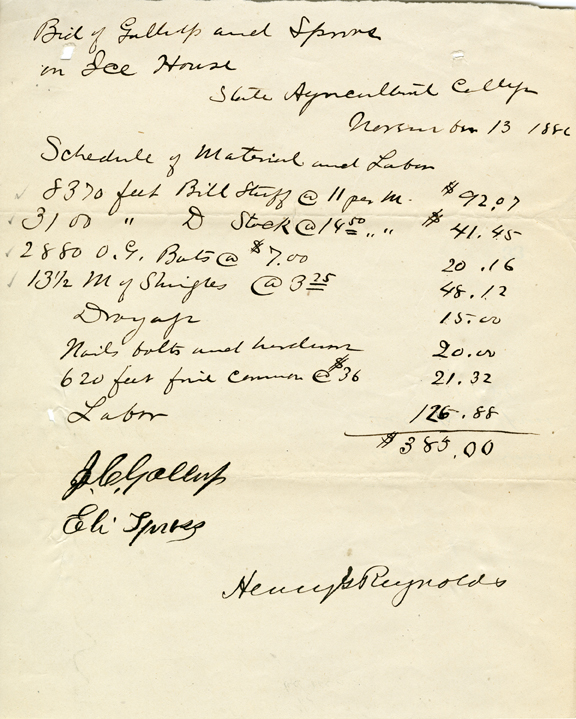 Bid of Gallup and Spross
on Ice House
State Agricultural College
November 13 188
Schedule of Material and Labor
8370 feet Bill Stuff @ 11 per M. $92.07
3100 " D Stock @ 14 50 " " $41.45
2880 O.G. Bats @ $7.00 20.16
13½ M of Shingles @ 3 25 48.12
Drayage 15.00
Nails bolts and hardware 20.00
620 feet fine common @ $36 21.32
Labor 126.88
$385.00
J.C. Gallup
Eli Spross
Henry G Reynolds